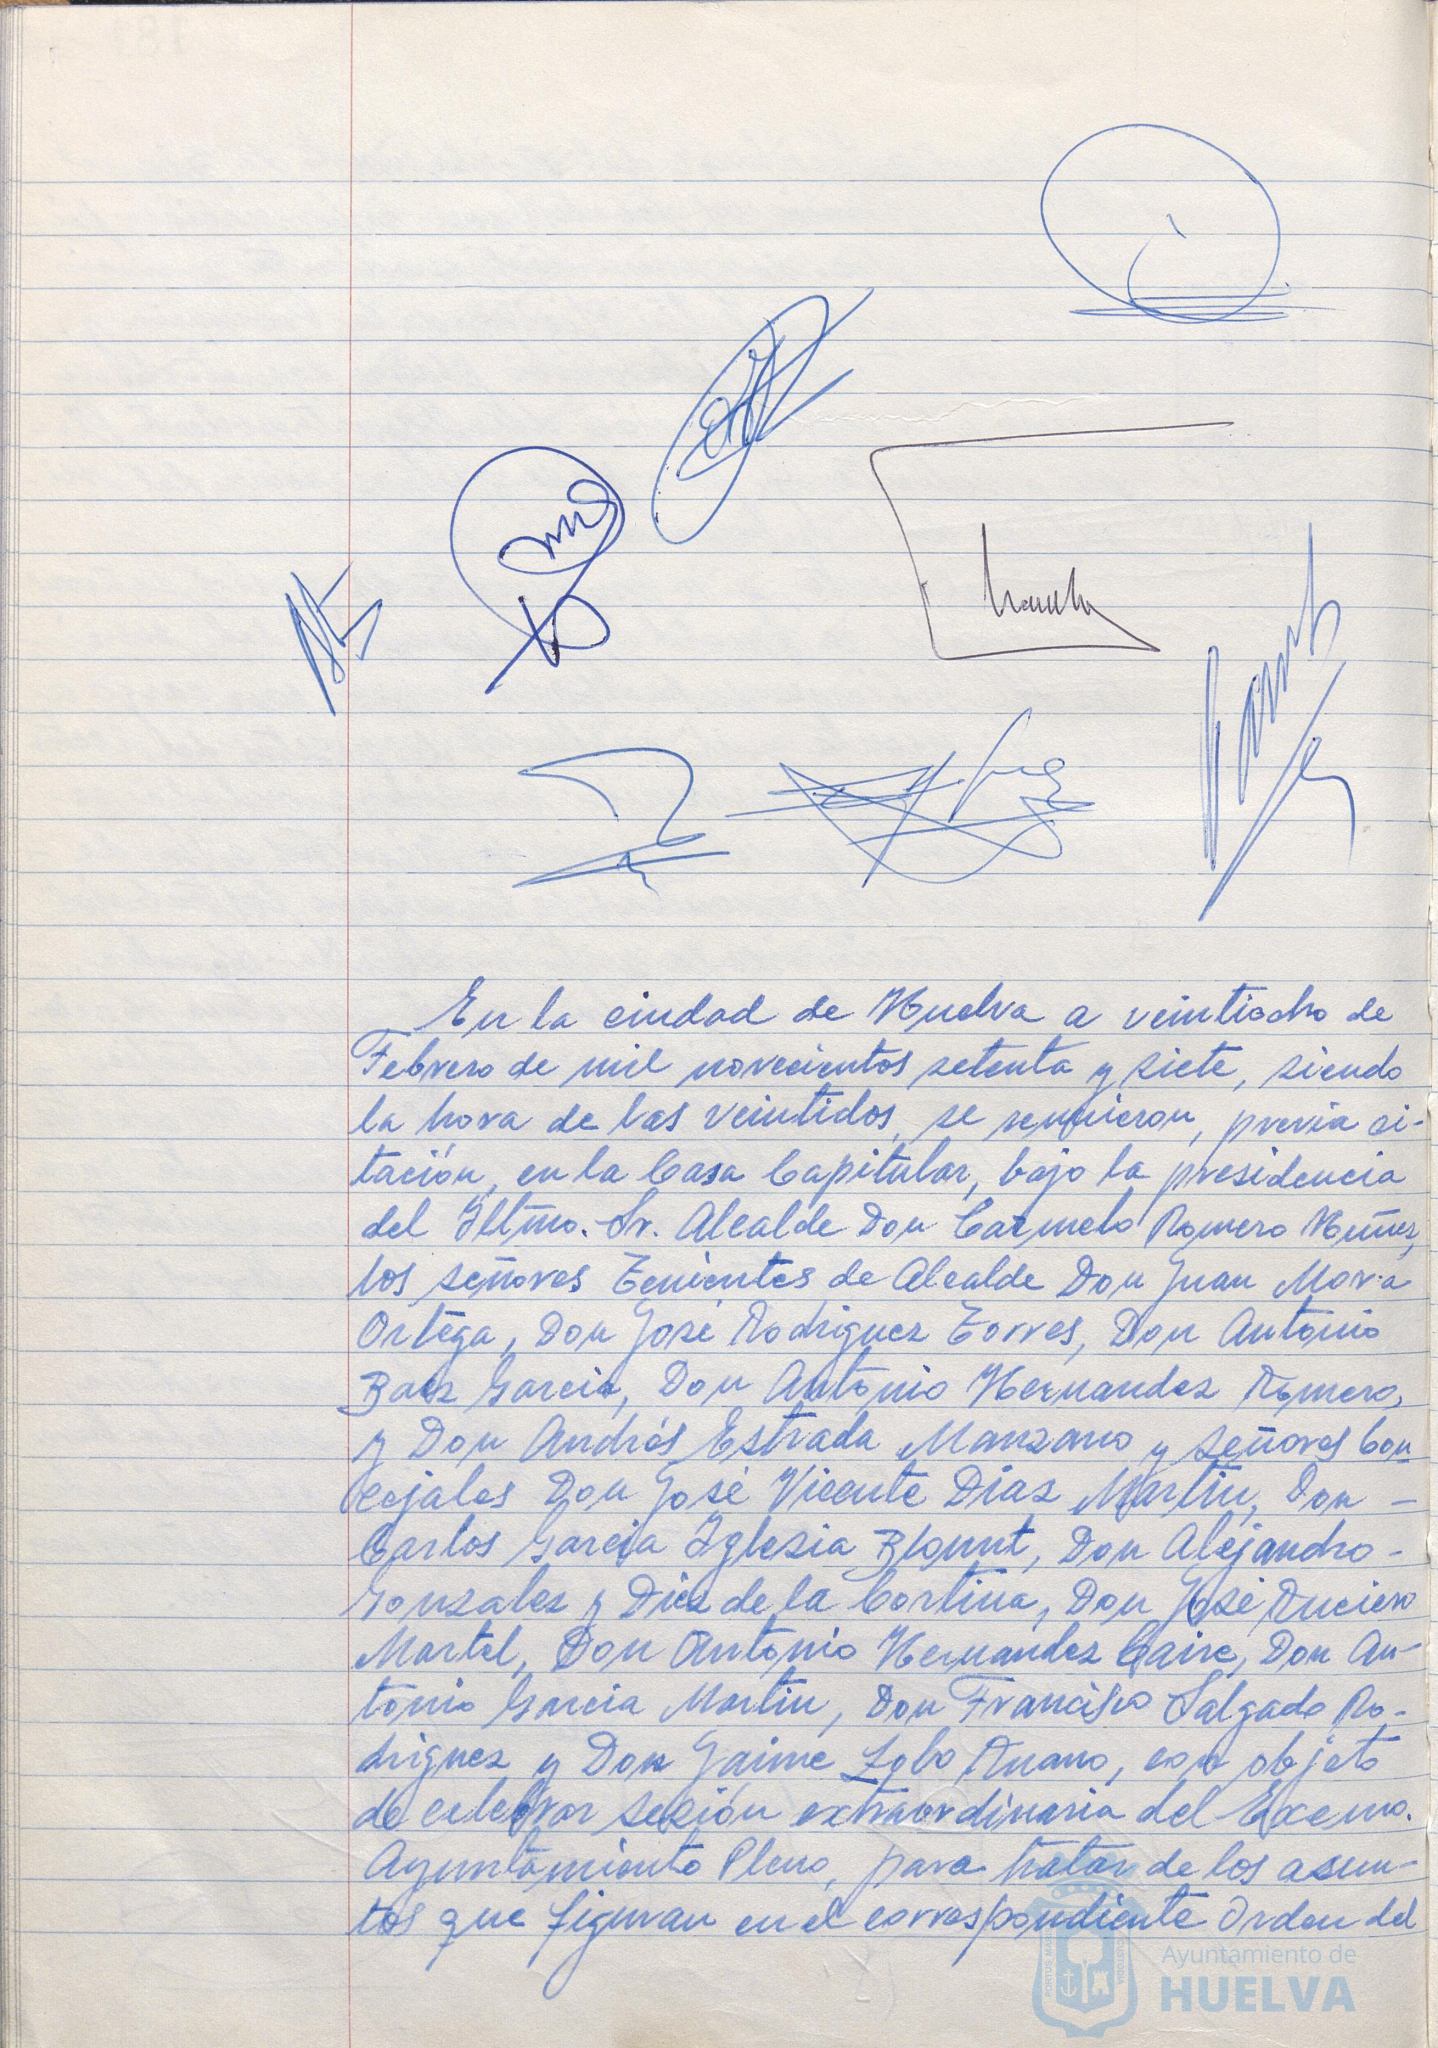 En la ciudad de Huelva a veintiocho de
Febrero de mil novecientos setenta y siete, siendo
la hora de las veintidos, se reunieron, previa ci-
tación, en la Casa Capitular, bajo la presidencia
del Iltmo. Sr. Alcalde Don Carmelo Romero Núñez,
los señores Tenientes de Alcalde Don Juan Mora
Ortega, Don José Rodriguez Torres, Don Antonio
Baez Garcia, Don Antonio Hernandez Romero,
y Don Andrés Estrada Manzano y señores Con
cejales Don José Vicente Diaz Martin, Don -
Carlos Garcia Iglesia Blount, Don Alejandro -
Gonzalez y Diez de la Cortina, Don José
Martel, Don Antonio Hernandez Caire, Don An-
tonio Garcia Martin, Don Francisco Salgado Ro-
driguez y Don Jaime Ruano, con objeto
de celebrar sesión extraordinaria del Excmo.
Ayuntamiento Pleno, para tratar de los asun-
tos que figuran en el correspondiente Orden del
Ayuntamiento de
HUELVA